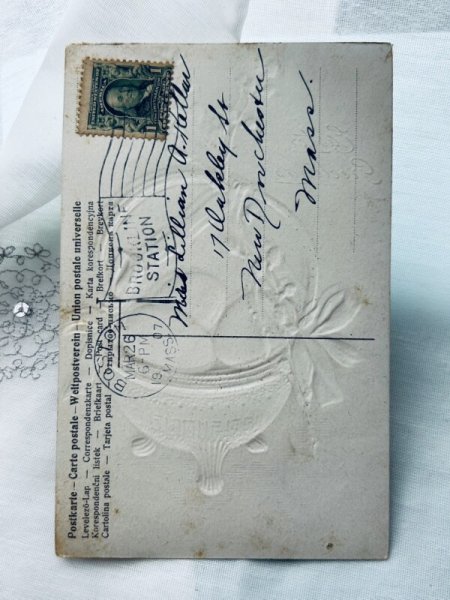 Postkarte – Carte postale – Weltpostverein – Union postale universelle
Levelező-Lap — Correspondenzkarte — Dopisnice — Karta korespondencyjna
Korespondenční lístek — Briefkaart — Postcard — Brefkort — Brevkort
Cartolina postale — Tarjeta postal — Открытое письмо — карта
MAR 26
6-PM
1907
MASS.
BROOKLINE
STATION
Miss Lillian A.
17 Oakley St
New Dorchester
Mass.